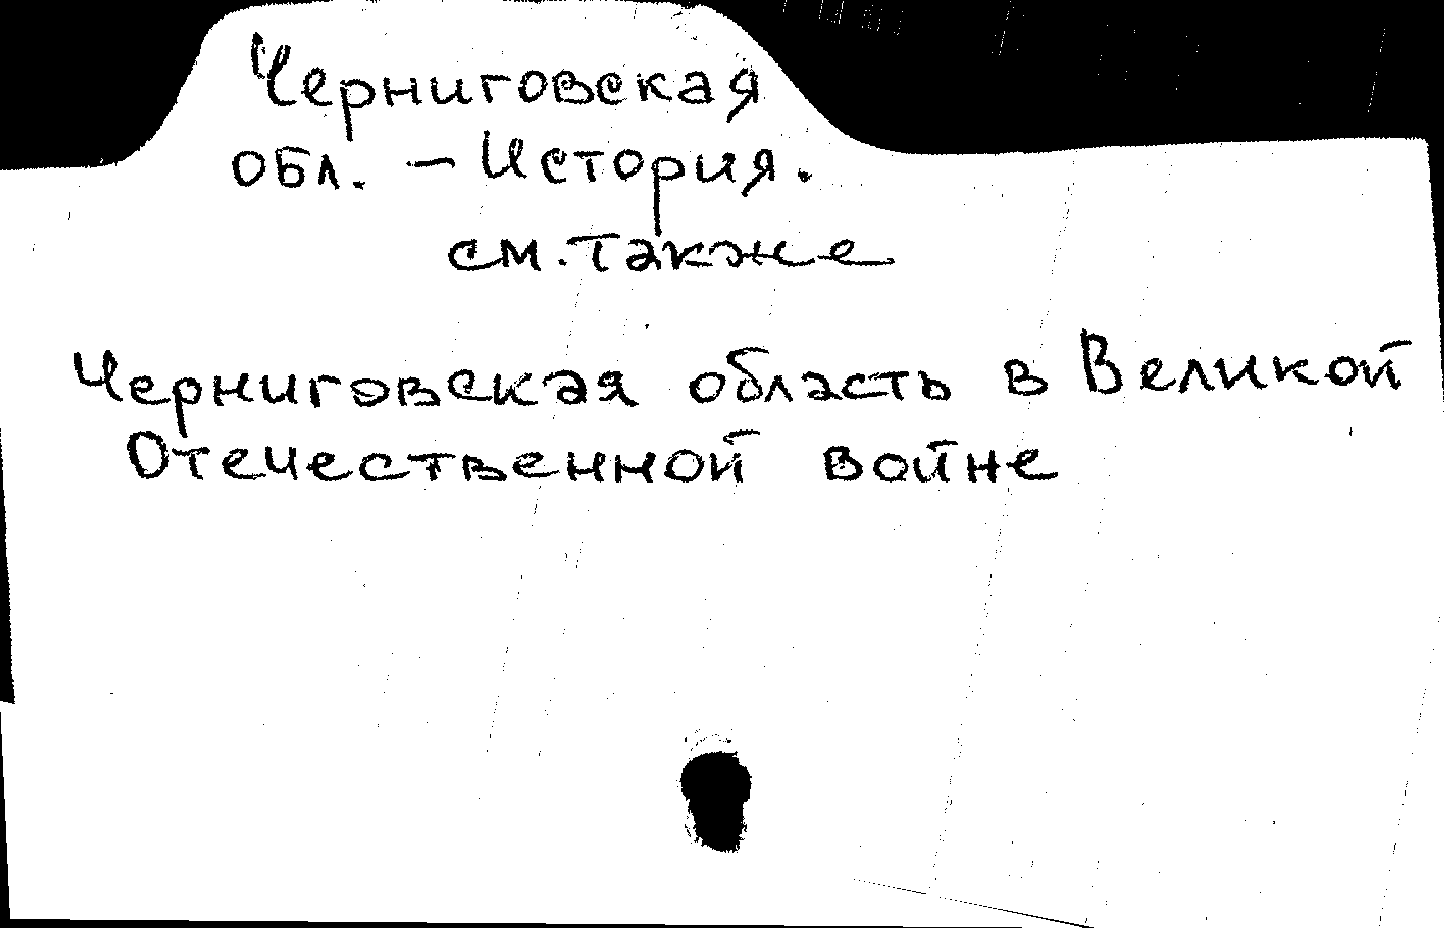 Черниговская
обл. – История.
см. также
Черниговская область в Великой
Отечественной войне